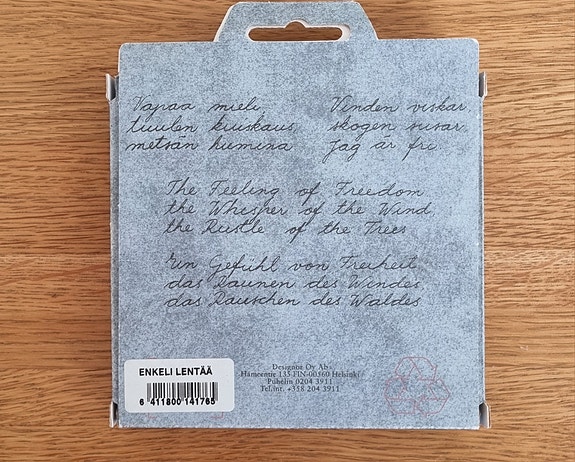 Vapaa mieli
tuulen kuiskaus
metsän humina
Vinden viskar
skogen susar
jag är fri
The Feeling of Freedom
the Whisper of the Wind
the Rustle of the Trees
Ein Gefühl von Freiheit
das Raunen des Windes
das Rauschen des Waldes
ENKELI LENTÄÄ
6 411800 141765
Designor Oy Ab
Hämeentie 135 FIN-00560 Helsinki
Puhelin 0204 3911
Tel.int. +358 204 3911